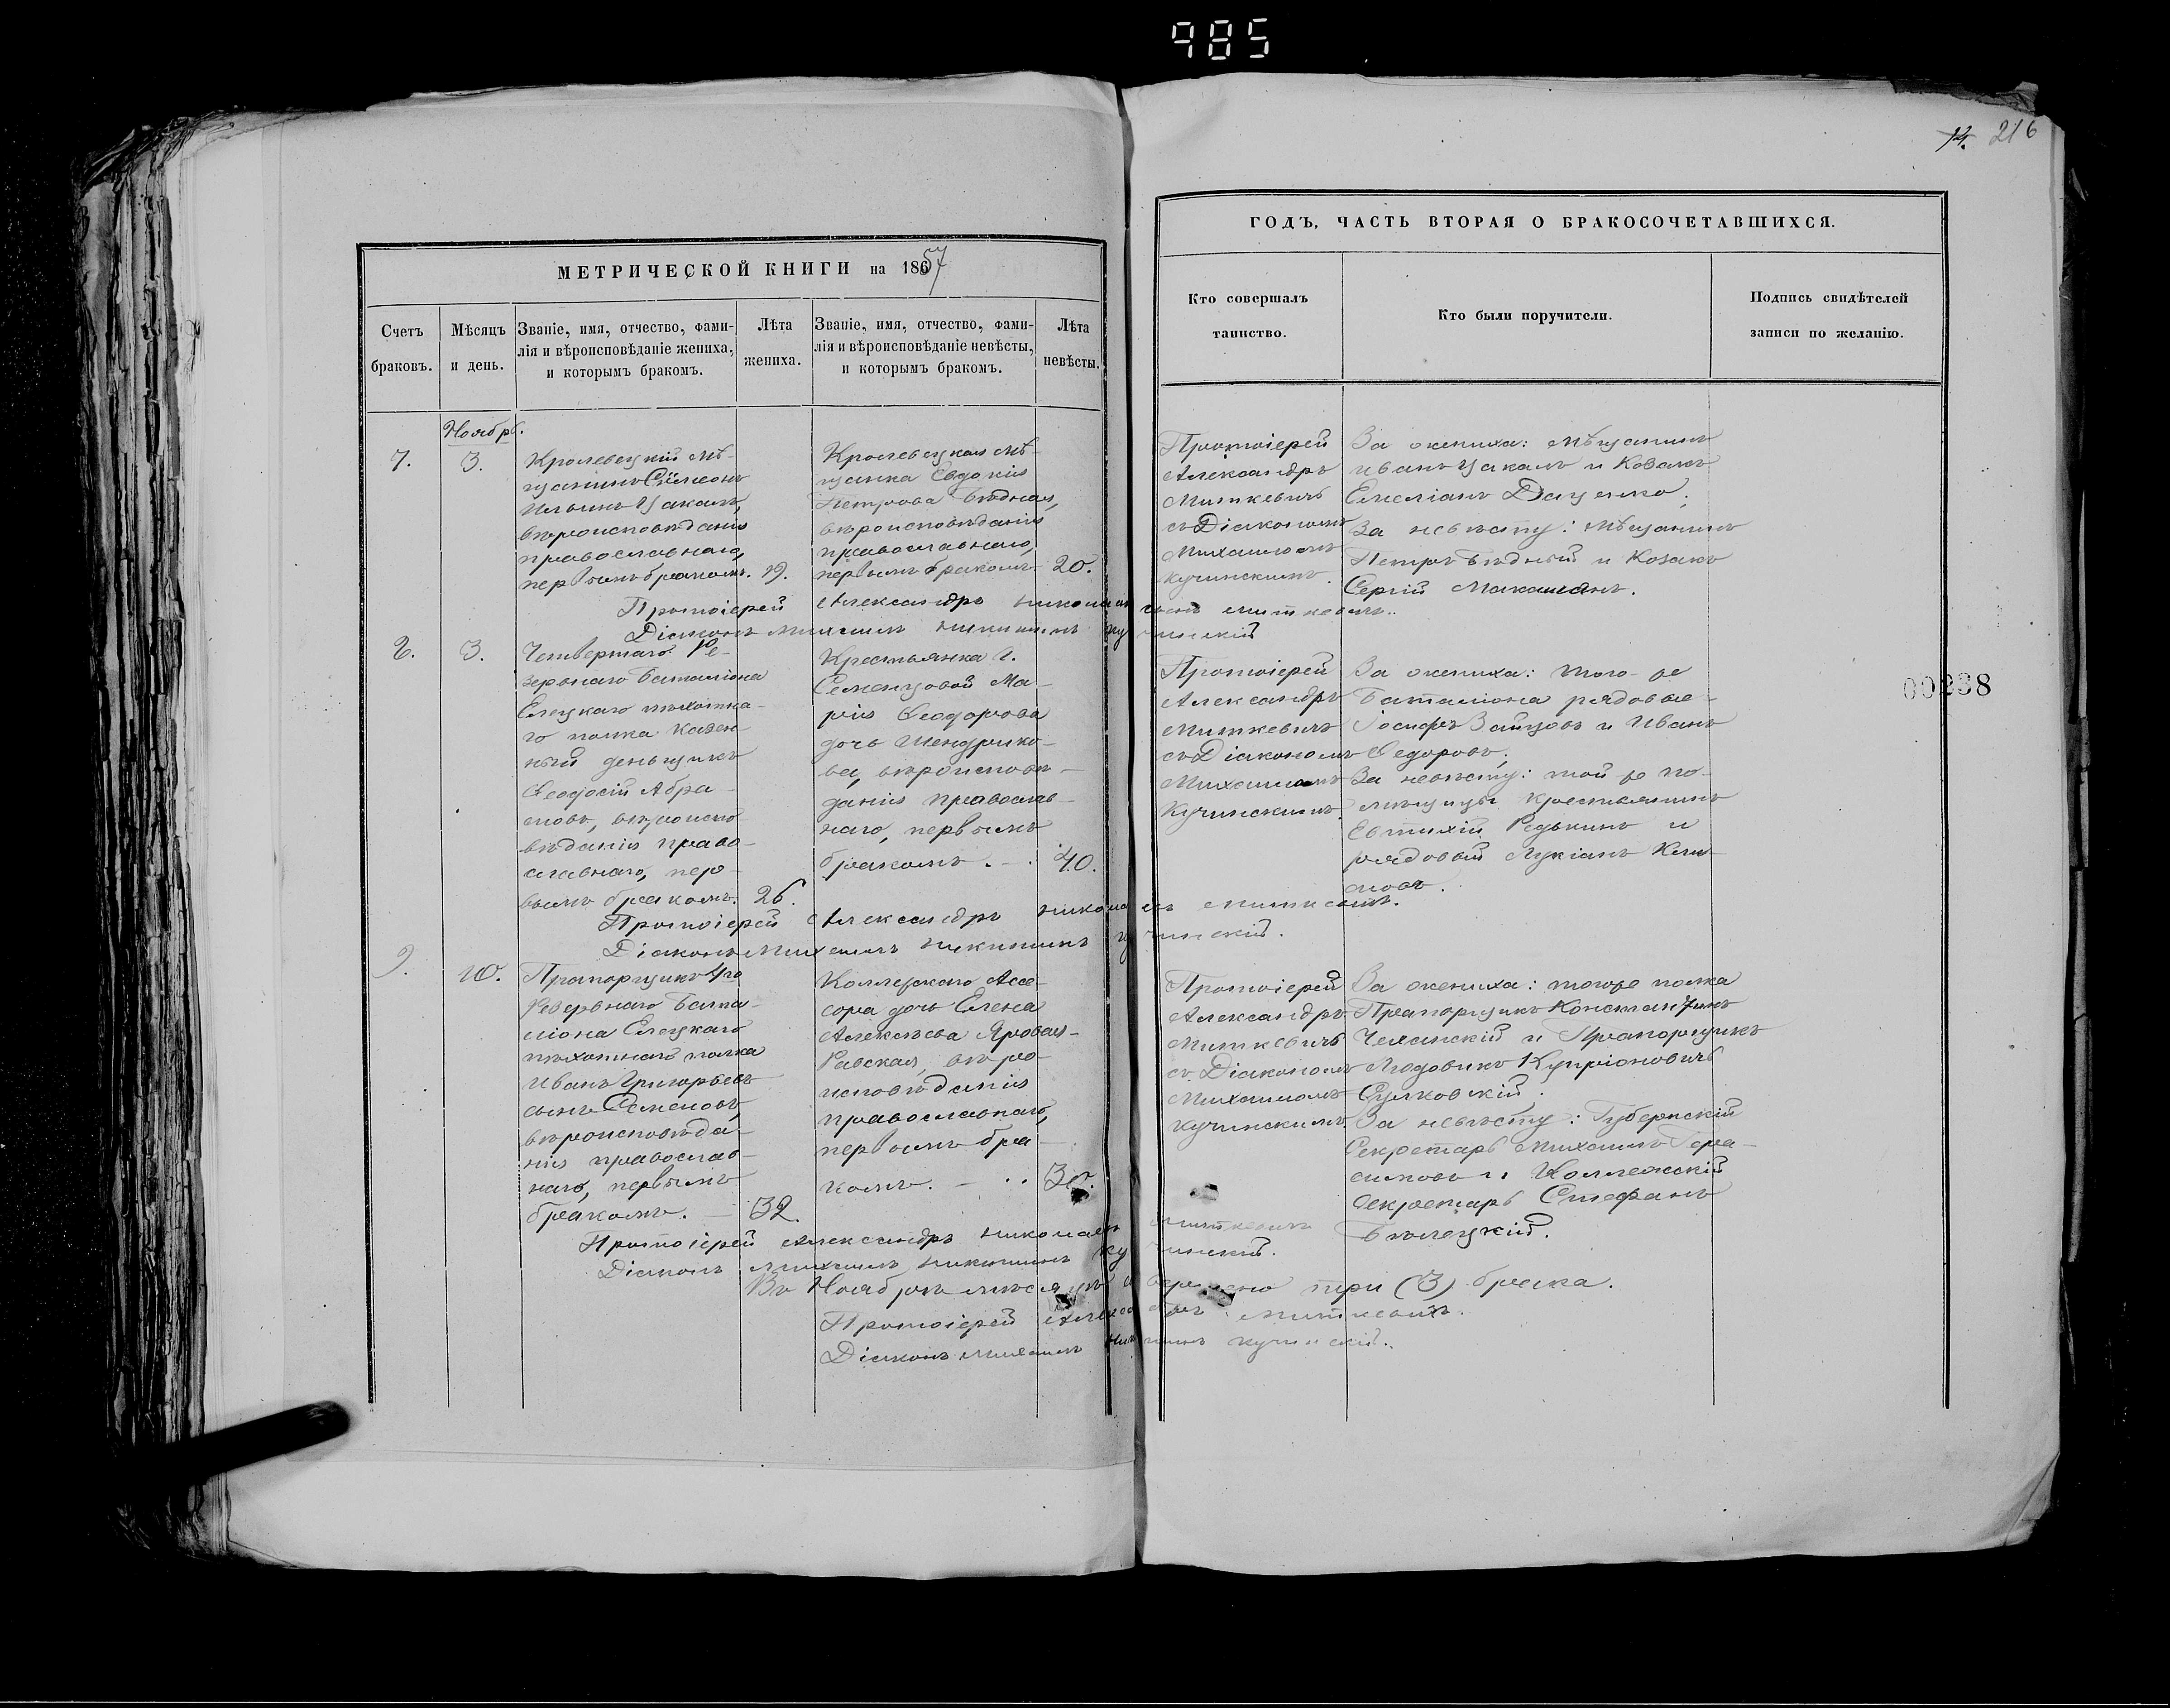 985
14. 216
МЕТРИЧЕСКОЙ КНИГИ на 1857
Счетъ
браковъ.
Мѣсяцъ
и день.
Званіе, имя, отчество, фами-
лія и вѣроисповѣданіе жениха,
и которымъ бракомъ.
Лѣта
жениха.
Званіе, имя, отчество, фами-
лія и вѣроисповѣданіе невѣсты,
и которымъ бракомъ.
Лѣта
невѣсты.
ГОДЪ, ЧАСТЬ ВТОРАЯ О БРАКОСОЧЕТАВШИХСЯ.
Кто совершалъ
таинство.
Кто были поручители.
Подпись свидѣтелей
записи по желанію.
Ноябрь.
7.
3.
Кролевецкій мѣ-
щанинъ Сѵмеонъ
Ильинъ Цакалъ,
вѣроисповѣданія
православнаго,
первымъ бракомъ. 19.
Кролевецкая мѣ-
щанка Евдокія
Петрова Бѣдная,
вѣроисповѣданія
православнаго,
первымъ бракомъ 20.
Протоіерей
Александръ
Миткевичъ
съ Діакономъ
Михаиломъ
Кучинскимъ.
За жениха: мѣщанинъ
Иванъ Цакалъ и Козакъ
Емеліанъ Даценко;
За невѣсту: мѣщанинъ
Петръ Бѣдный и Козакъ
Сергій
Протоіерей Александръ Николаевъ сынъ Миткевичъ.
Діаконъ Михаилъ Никитинъ Кучинскій
8.
3.
Четвертаго Ре-
зервнаго Баталіона
Елецкаго пѣхотна-
го полка казен-
ный деньщикъ
Ѳеодосій Абра-
мовъ, вѣроиспо-
вѣданія право-
славнаго, пер-
вымъ бракомъ. 26.
Крестьянка г.
Семенцовой Ма-
рія Ѳеодорова
дочь Шендрико-
ва, вѣроисповѣ-
данія православ-
наго, первымъ
бракомъ. 40.
Протоіерей
Александръ
Миткевичъ
съ Діакономъ
Михаиломъ
Кучинскимъ.
За жениха: того-же
Баталіона рядовые
Іосифъ Зайцовъ и Иванъ
Ѳедоровъ;
За невѣсту: той же по-
мѣщицы крестьянинъ
Евтихій Редькинъ и
рядовый Лукіанъ Кли-
мовъ.
Протоіерей Александръ Николаевъ Миткевичъ.
Діаконъ Михаилъ Никитинъ Кучинскій.
9.
10.
Прапорщикъ 4го
Резервнаго Бата-
ліона Елецкаго
пѣхотнаго полка
Иванъ Григорьевъ
сынъ Семеновъ,
вѣроисповѣда-
нія православ-
наго, первымъ
бракомъ. 32.
Коллежскаго Асе-
сора дочь Елена
Алексѣева
вѣро-
исповѣданія
православнаго,
первымъ бра-
комъ. 30.
Протоіерей
Александръ
Миткевичъ
съ Діакономъ
Михаиломъ
Кучинскимъ.
За жениха: тогоже полка
Прапорщикъ Константинъ
и Прапорщикъ
Людовикъ Купріоновичъ
Сулковскій.
За невѣсту: Губернскій
Секретарь Михаилъ Гера-
симовъ и Коллежскій
Секретарь Стефанъ
Бѣлецкій.
Протоіерей Александръ Николаевъ Миткевичъ
Діаконъ Михаилъ Никитинъ Кучинскій.
Въ Ноябрѣ мѣсяцѣ совершено три (3) брака.
Протоіерей Александръ Миткевичъ.
Діаконъ Михаилъ Никитинъ Кучинскій.
00238